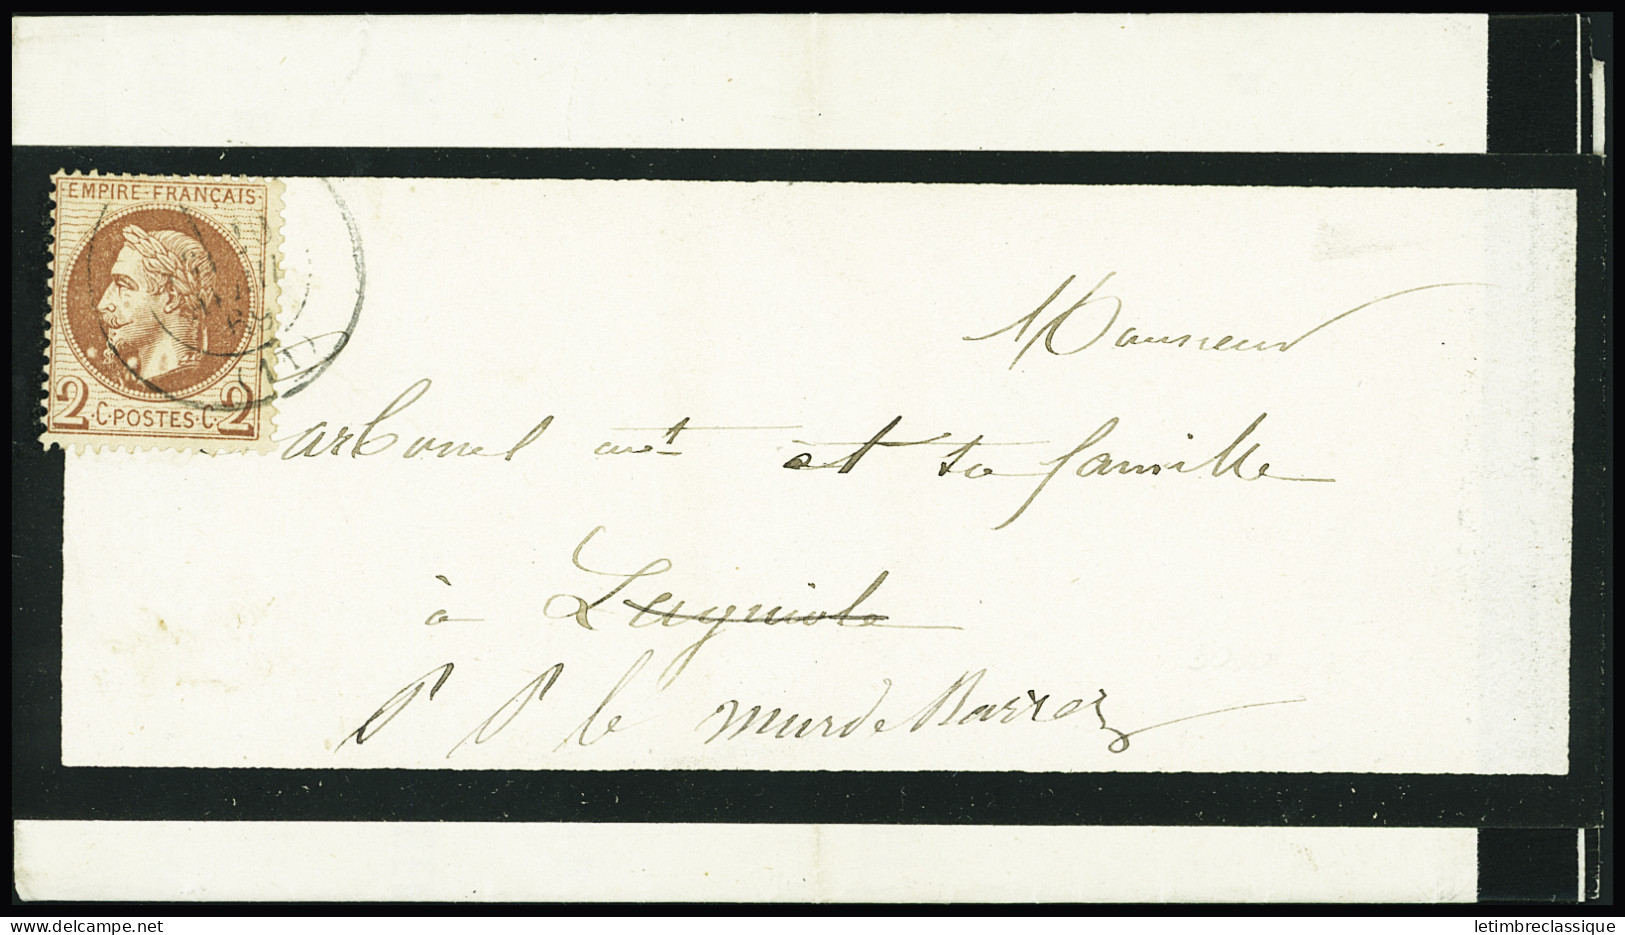 EMPIRE·FRANÇAIS
2·C·POSTES·C·2
(11)
Monsieur
Carbonel et sa famille
à Laguiole
P P le mur de Barrez
letimbreclassique